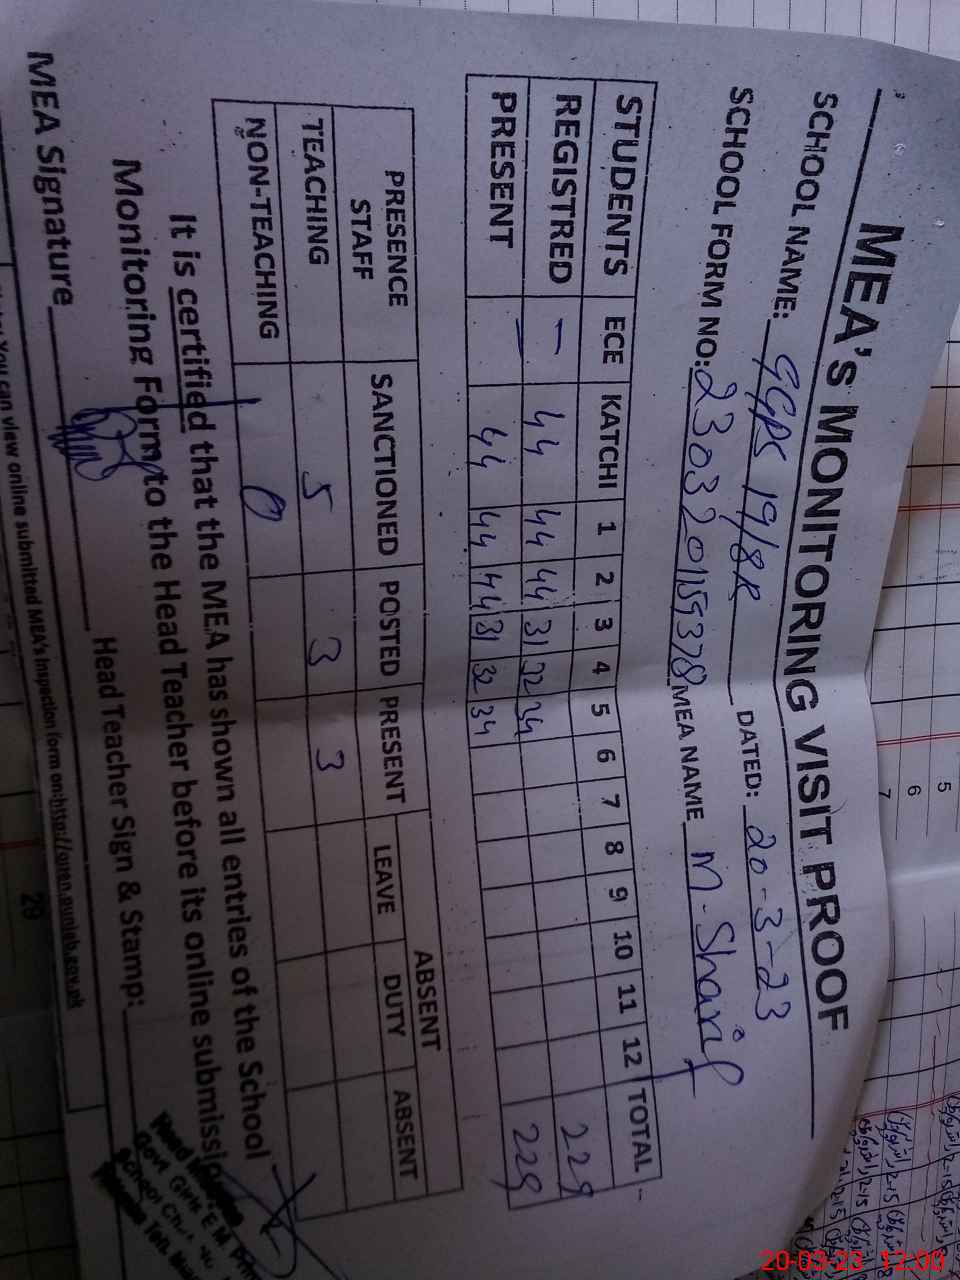 MEA'S MONITORING VISIT PROOF
SCHOOL NAME: GGPS 19/8R DATED: 20-3-23
SCHOOL FORM NO: 2303201159378 MEA NAME M-Sharif
STUDENTS ECE KATCHI 1 2 3 4 5 6 7 8 9 10 11 12 TOTAL
REGISTRED – 44 44 44 31 32 34 229
PRESENT – 44 44 44 31 32 34 229
PRESENCE STAFF SANCTIONED POSTED PRESENT ABSENT
LEAVE DUTY ABSENT
TEACHING 5 3 3
NON-TEACHING 0
It is certified that the MEA has shown all entries of the School
Monitoring Form to the Head Teacher before its online submission
MEA Signature Head Teacher Sign & Stamp:
You can view online submitted MEA's Inspection form on:
29
5
6
7
20-03-23 12:00